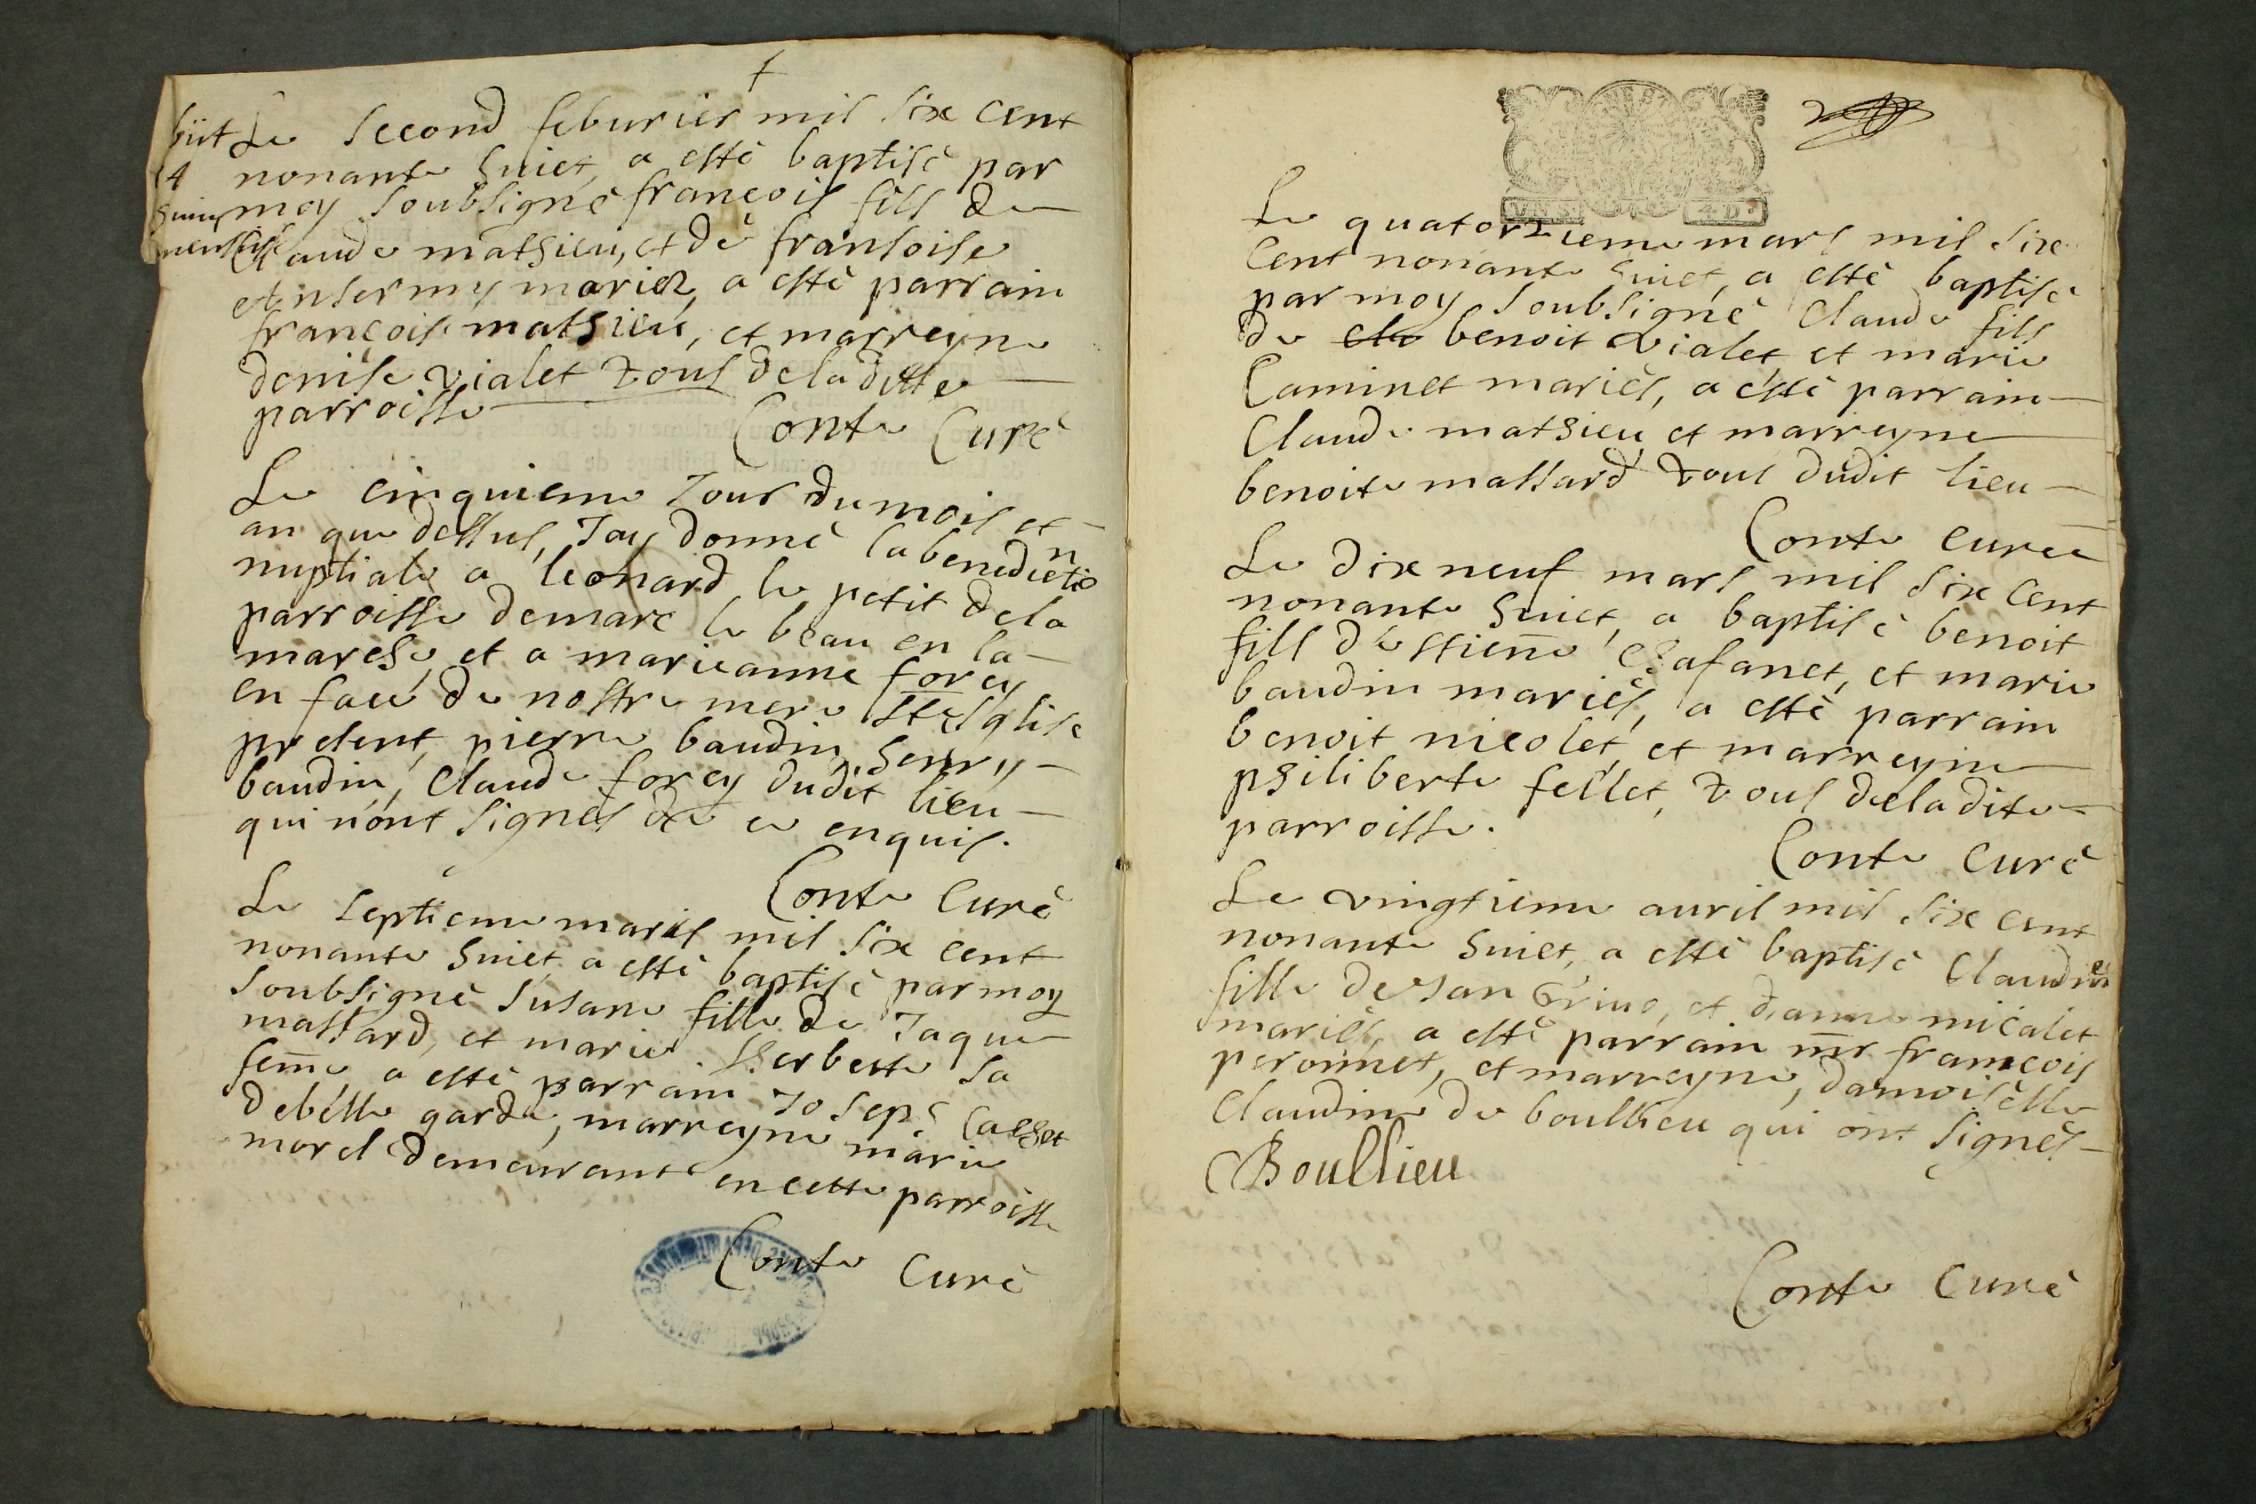 Le second feburier mil six cent
nonante huict, a esté baptisé par
moy soubsigné françois fils de
Claude mathieu, et de fransoise
mariez, a esté parrain
françois mathieu, et marreyne
denise vialet tous de la ditte
parroisse
Conte Curé
Le cinquieme Jour du mois et
an que dessus, Jay donné la benedictiō
nuptiale a leonard le petit de la
parroisse de marc le beau en la
marche, et a marieanne forey
en face de nostre mere Ste Esglise
present, pierre baudin, henry
baudin, Claude forey dudit lieu
qui n'ont signés de ce enquis.
Conte Curé
Le septieme mars mil six cent
nonante huict, a esté baptisé par moy
soubsigné susane fille de Jaque
massard, et marie herbette sa
fem̄e, a esté parrain Joseph Cachet
debelle garde, marreyne marie
morel demeurante en cette parroisse
Conte Curé
2
Le quatorzieme mars mil six
Cent nonante huict, a esté baptisé
par moy soubsigné Claude fils
de cla benoit vialet et marie
Caminet mariés, a esté parrain
Claude mathieu et marreyne
benoite massard tous dudit lieu
Conte curée
Le dix neuf mars mil six Cent
nonante huict, a baptisé benoit
fils destien̄e Chafanet, et marie
baudin mariés, a esté parrain
benoit nicolet, et marreyne
philiberte fellet, tous de la dite
parroisse.
Conte Curé
Le vingtieme auril mil six cent
nonante huict, a esté baptisé Claudine
fille de Jan et danne micalet
mariés, a esté parrain mr françois
peronnet, et marreyne, damoiselle
Claudine de boullieu qui ont signés
Boullieu
Conte Curé